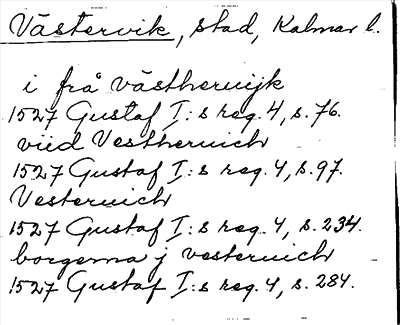 Västervik, stad, Kalmar l.
i frå västhernijk
1527 Gustaf I:s reg. 4, s. 76.
viid Vesthernich
1527 Gustaf I:s reg. 4, s. 97.
Vesternich
1527 Gustaf I:s reg. 4, s. 234.
borgerna j vesternich
1527 Gustaf I:s reg. 4, s. 284.